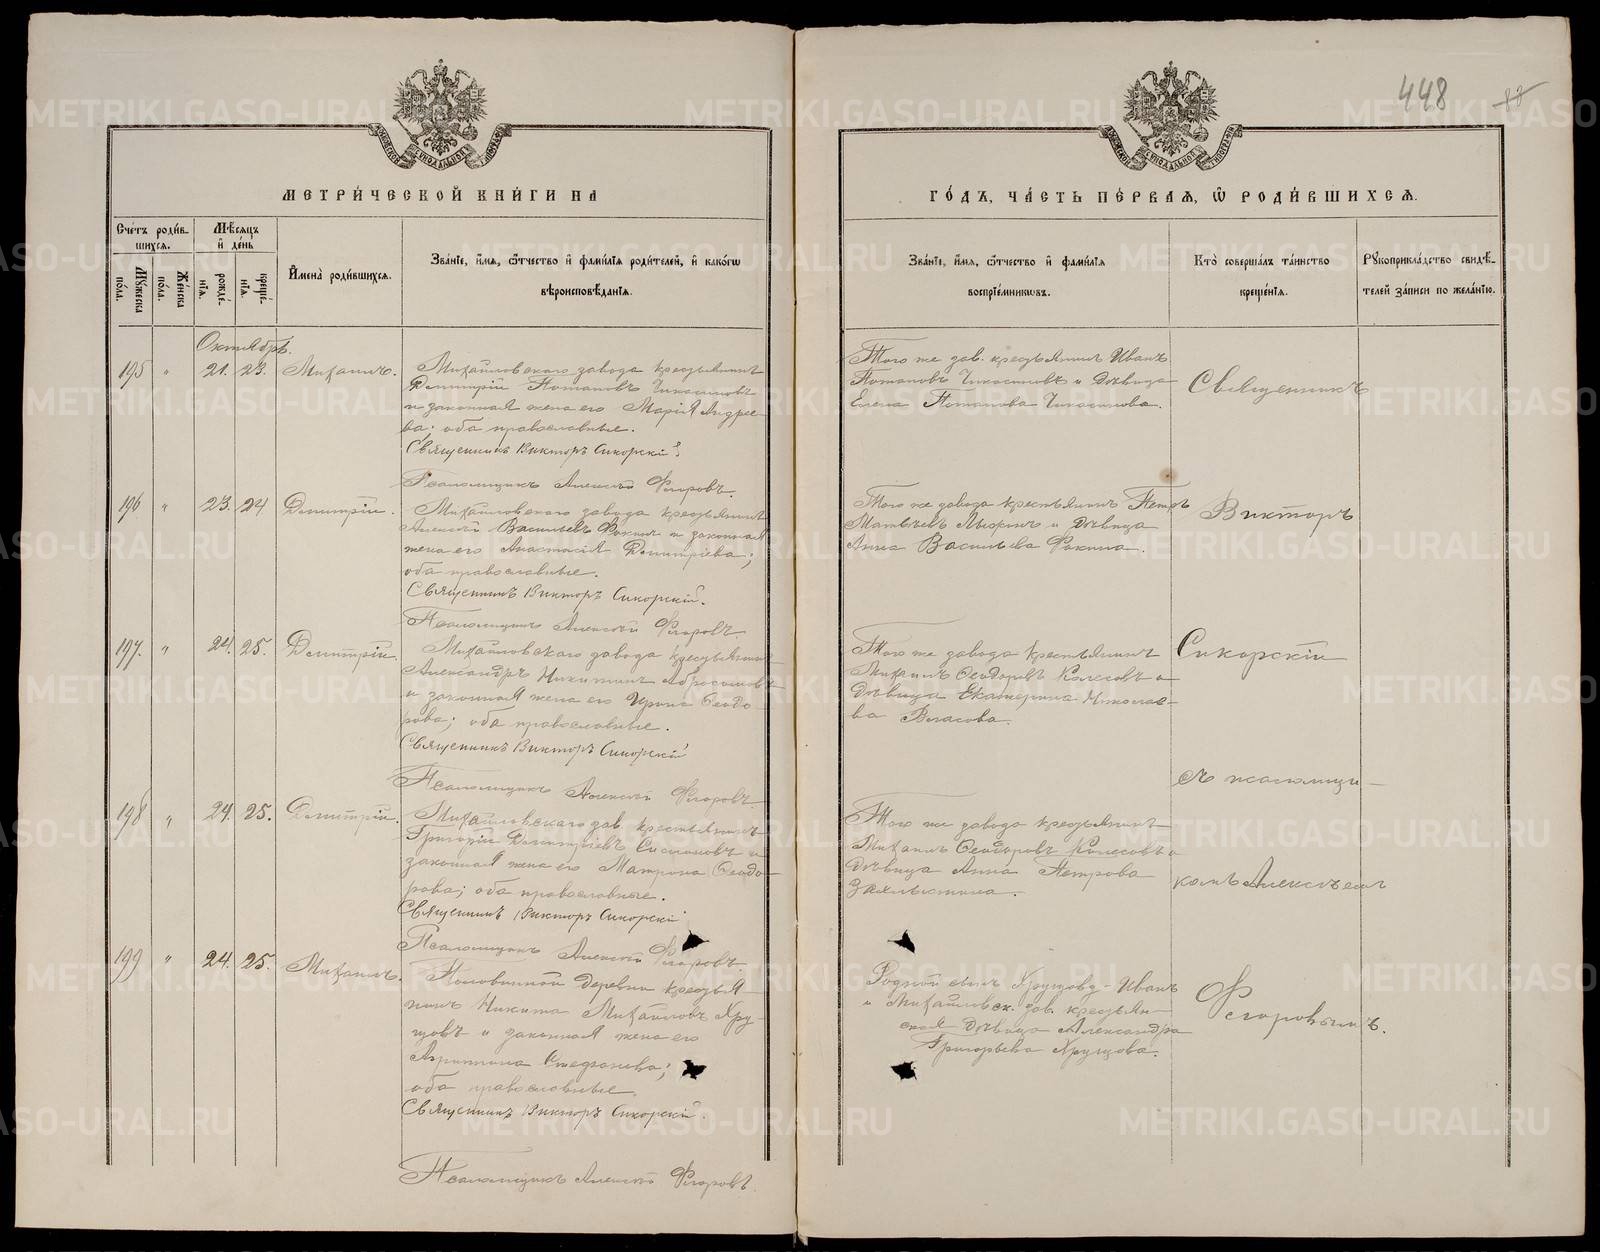 448
МЕТРИ́ЧЕСКОЙ КНИ́ГИ НА
ГО́ДЪ, ЧА́СТЬ ПЕ́РВАЯ, Ѡ РОДИ́ВШИХСЯ.
Сче́тъ роди́в-
шихся.
Му́жеска
по́ла.
Же́нска
по́ла.
Мѣ́сяцъ
и҆ де́нь
рожде́-
нїя.
креще́-
нїя.
И҆мена̀ роди́вшихся.
Зва́нїе, и҆́мя, ѻ҆́тчество и҆ фами́лїя роди́телей, и҆ како́гѡ
вѣроисповѣ́данїя.
Зва́нїе, и҆́мя, ѻ҆́тчество и҆ фами́лїя
воспрїе́мниковъ.
Кто̀ соверша́лъ та́инство
креще́нїя.
Рꙋкоприкла́дство свидѣ́-
телей за́писи по жела́нїю.
Октябрь.
195 " 21. 23. Михаилъ.
Михайловскаго завода крестьянинъ
Димитрій Потаповъ
и законная жена его Марія Андрее-
ва; оба православные.
Священникъ Викторъ Сикорскій
Псаломщикъ Алексѣй Ѳегоровъ.
Того же зав. крестьянинъ Иванъ
Потаповъ и дѣвица
Елена Потапова
Священникъ
196 " 23. 24 Димитрій.
Михайловскаго завода крестьянинъ
Алексѣй Васильевъ Фокинъ и законная
жена его Анастасія Димитріева;
оба православные.
Священникъ Викторъ Сикорскій.
Псаломщикъ Алексѣй Ѳегоровъ
Того же завода крестьянинъ Петръ
Матвѣевъ и дѣвица
Анна Васильева Фокина.
Викторъ
197. " 24. 25. Димитрій.
Михайловскаго завода крестьянинъ
Александръ Никитинъ Абросимовъ
и законная жена его Ирина Ѳеодо-
рова; оба православные.
Священникъ Викторъ Сикорскій
Псаломщикъ Алексѣй Ѳегоровъ.
Того же завода крестьянинъ
Михаилъ Ѳеодоровъ Колесовъ и
дѣвица Екатерина Николае-
ва Власова.
Сикорскій
съ псаломщи-
198 " 24. 25. Димитрій.
Михайловскаго зав. крестьянинъ
Григорій Димитріевъ и
законная жена его Матрона Ѳеодо-
рова; оба православные.
Священникъ Викторъ Сикорскій
Псаломщикъ Алексѣй Ѳегоровъ.
Того же завода крестьянинъ
Михаилъ Ѳеодоровъ Колесовъ и
дѣвица Анна Петрова
комъ Алексѣемъ
199 " 24. 25. Михаилъ.
Половинной деревни крестья-
нинъ Никита Михайловъ Хру-
щовъ и законная жена его
Агриппина Стефанова;
оба православные.
Священникъ Викторъ Сикорскій.
Псаломщикъ Алексѣй Ѳегоровъ.
Родной сынъ Хрущову - Иванъ
и Михайловск. зав. крестьян-
ская дѣвица Александра
Григорьева Хрущова.
Ѳегоровымъ.
METRIKI.GASO-URAL.RU